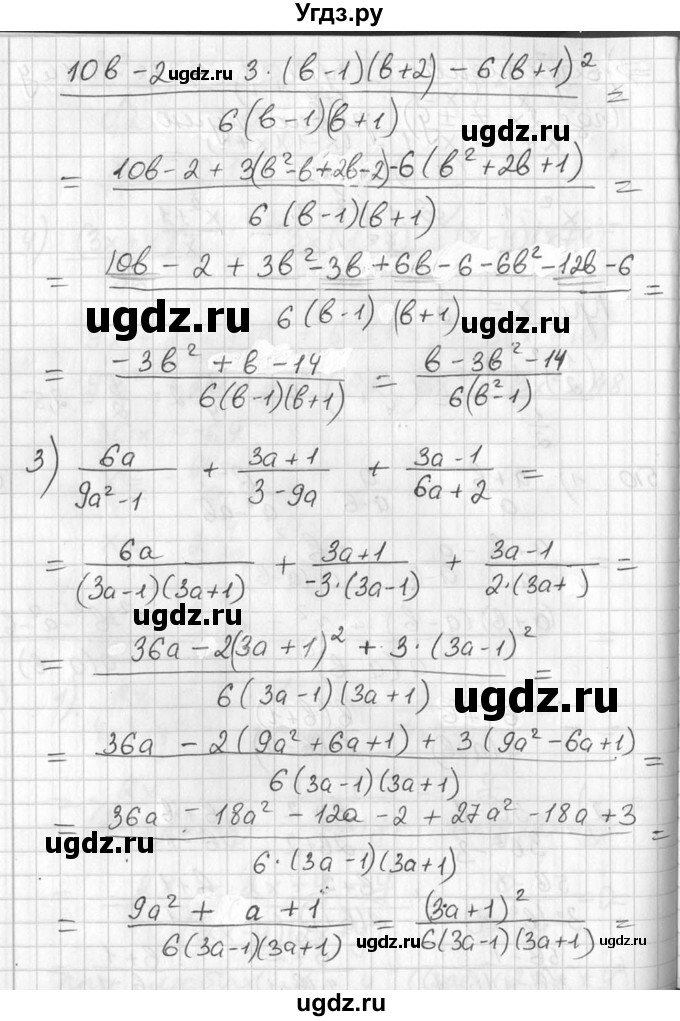 Угдз.ру
10в - 2 ugdz.ru 3·(в-1)(в+2) - 6(в+1)² / 6(в-1)(в+1) =
ugdz.ru
= 10в - 2 + 3(в²-в+2в-2) - 6(в²+2в+1) / 6(в-1)(в+1) =
= 10в - 2 + 3в² - 3в + 6в - 6 - 6в² - 12в - 6 / 6(в-1)(в+1) =
ugdz.ru ugdz.ru
= -3в² + в - 14 / 6(в-1)(в+1) = в - 3в² - 14 / 6(в²-1)
3) 6a / 9a²-1 + 3a+1 / 3-9a + 3a-1 / 6a+2 =
= 6a / (3a-1)(3a+1) + 3a+1 / -3·(3a-1) + 3a-1 / 2·(3a+ ) =
ugdz.ru
= 36a - 2(3a+1)² + 3·(3a-1)² / 6(3a-1)(3a+1) =
ugdz.ru
= 36a - 2(9a²+6a+1) + 3(9a²-6a+1) / 6(3a-1)(3a+1) =
= 36a - 18a² - 12a - 2 + 27a² - 18a + 3 / 6·(3a-1)(3a+1) =
ugdz.ru
= 9a² + a + 1 / 6(3a-1)(3a+1) = (3a+1)² / 6(3a-1)(3a+1) =
ugdz.ru ugdz.ru
ugdz.ru